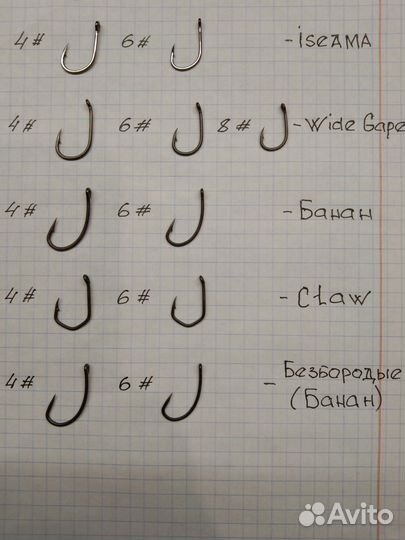 4# 6# - iseAMA
4# 6# 8# - Wide Gape
4# 6# - Банан
4# 6# - Cław
4# 6# - Безбородые
(Банан)
Avito